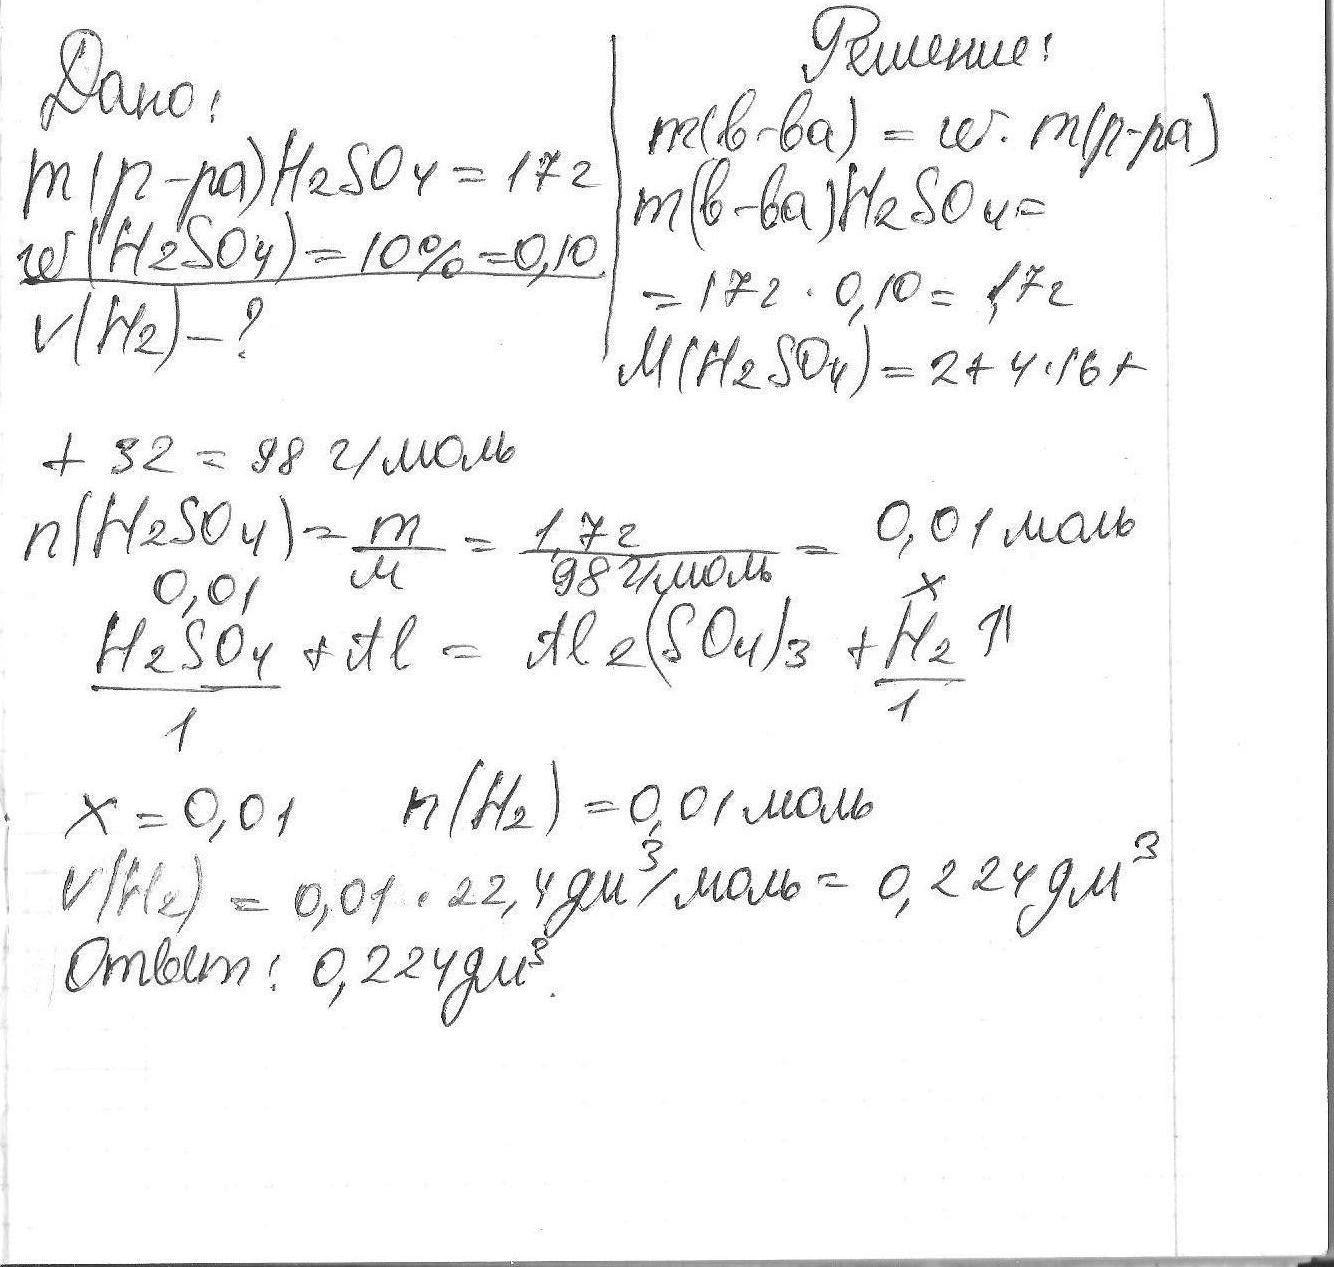 Дано:
m(р-ра)H2SO4=17г
w(H2SO4)=10%=0,10
V(H2)-?
Решение:
m(в-ва) = w·m(р-ра)
m(в-ва)H2SO4=
=17г·0,10=1,7г
M(H2SO4)=2+4·16+
+32=98 г/моль
n(H2SO4)=m/M=1,7г/98г/моль=0,01моль
0,01 x
H2SO4+Al = Al2(SO4)3+H2↑
1 1
x=0,01 n(H2)=0,01моль
V(H2)=0,01·22,4дм³/моль=0,224дм³
Ответ: 0,224дм³.